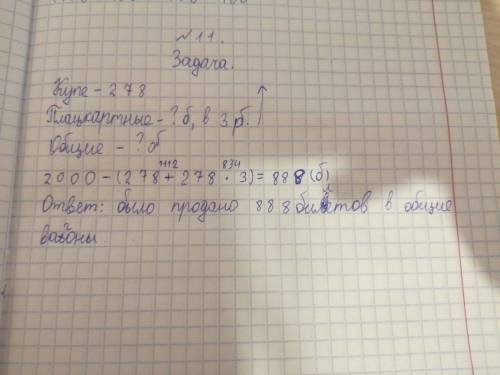 №11.
Задача.
Купе – 278
Плацкартные – ? б, в 3 р. ↑
Общие – ? б
1112 834
2000 – (278 + 278 · 3) = 888 (б)
Ответ: было продано 888 билетов в общие
вагоны.